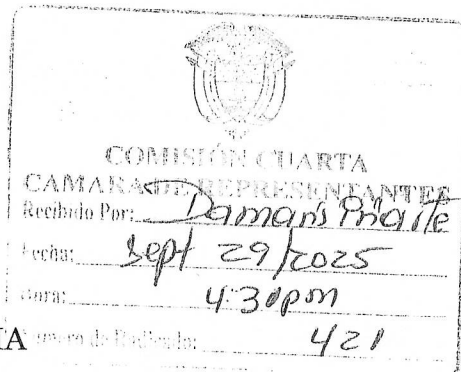 COMISIÓN CUARTA
CAMARA DE REPRESENTANTES
Recibido Por: Damaris
Fecha: Sept 29/2025
Hora: 4:30pm
Número de Radicado: 421
TA